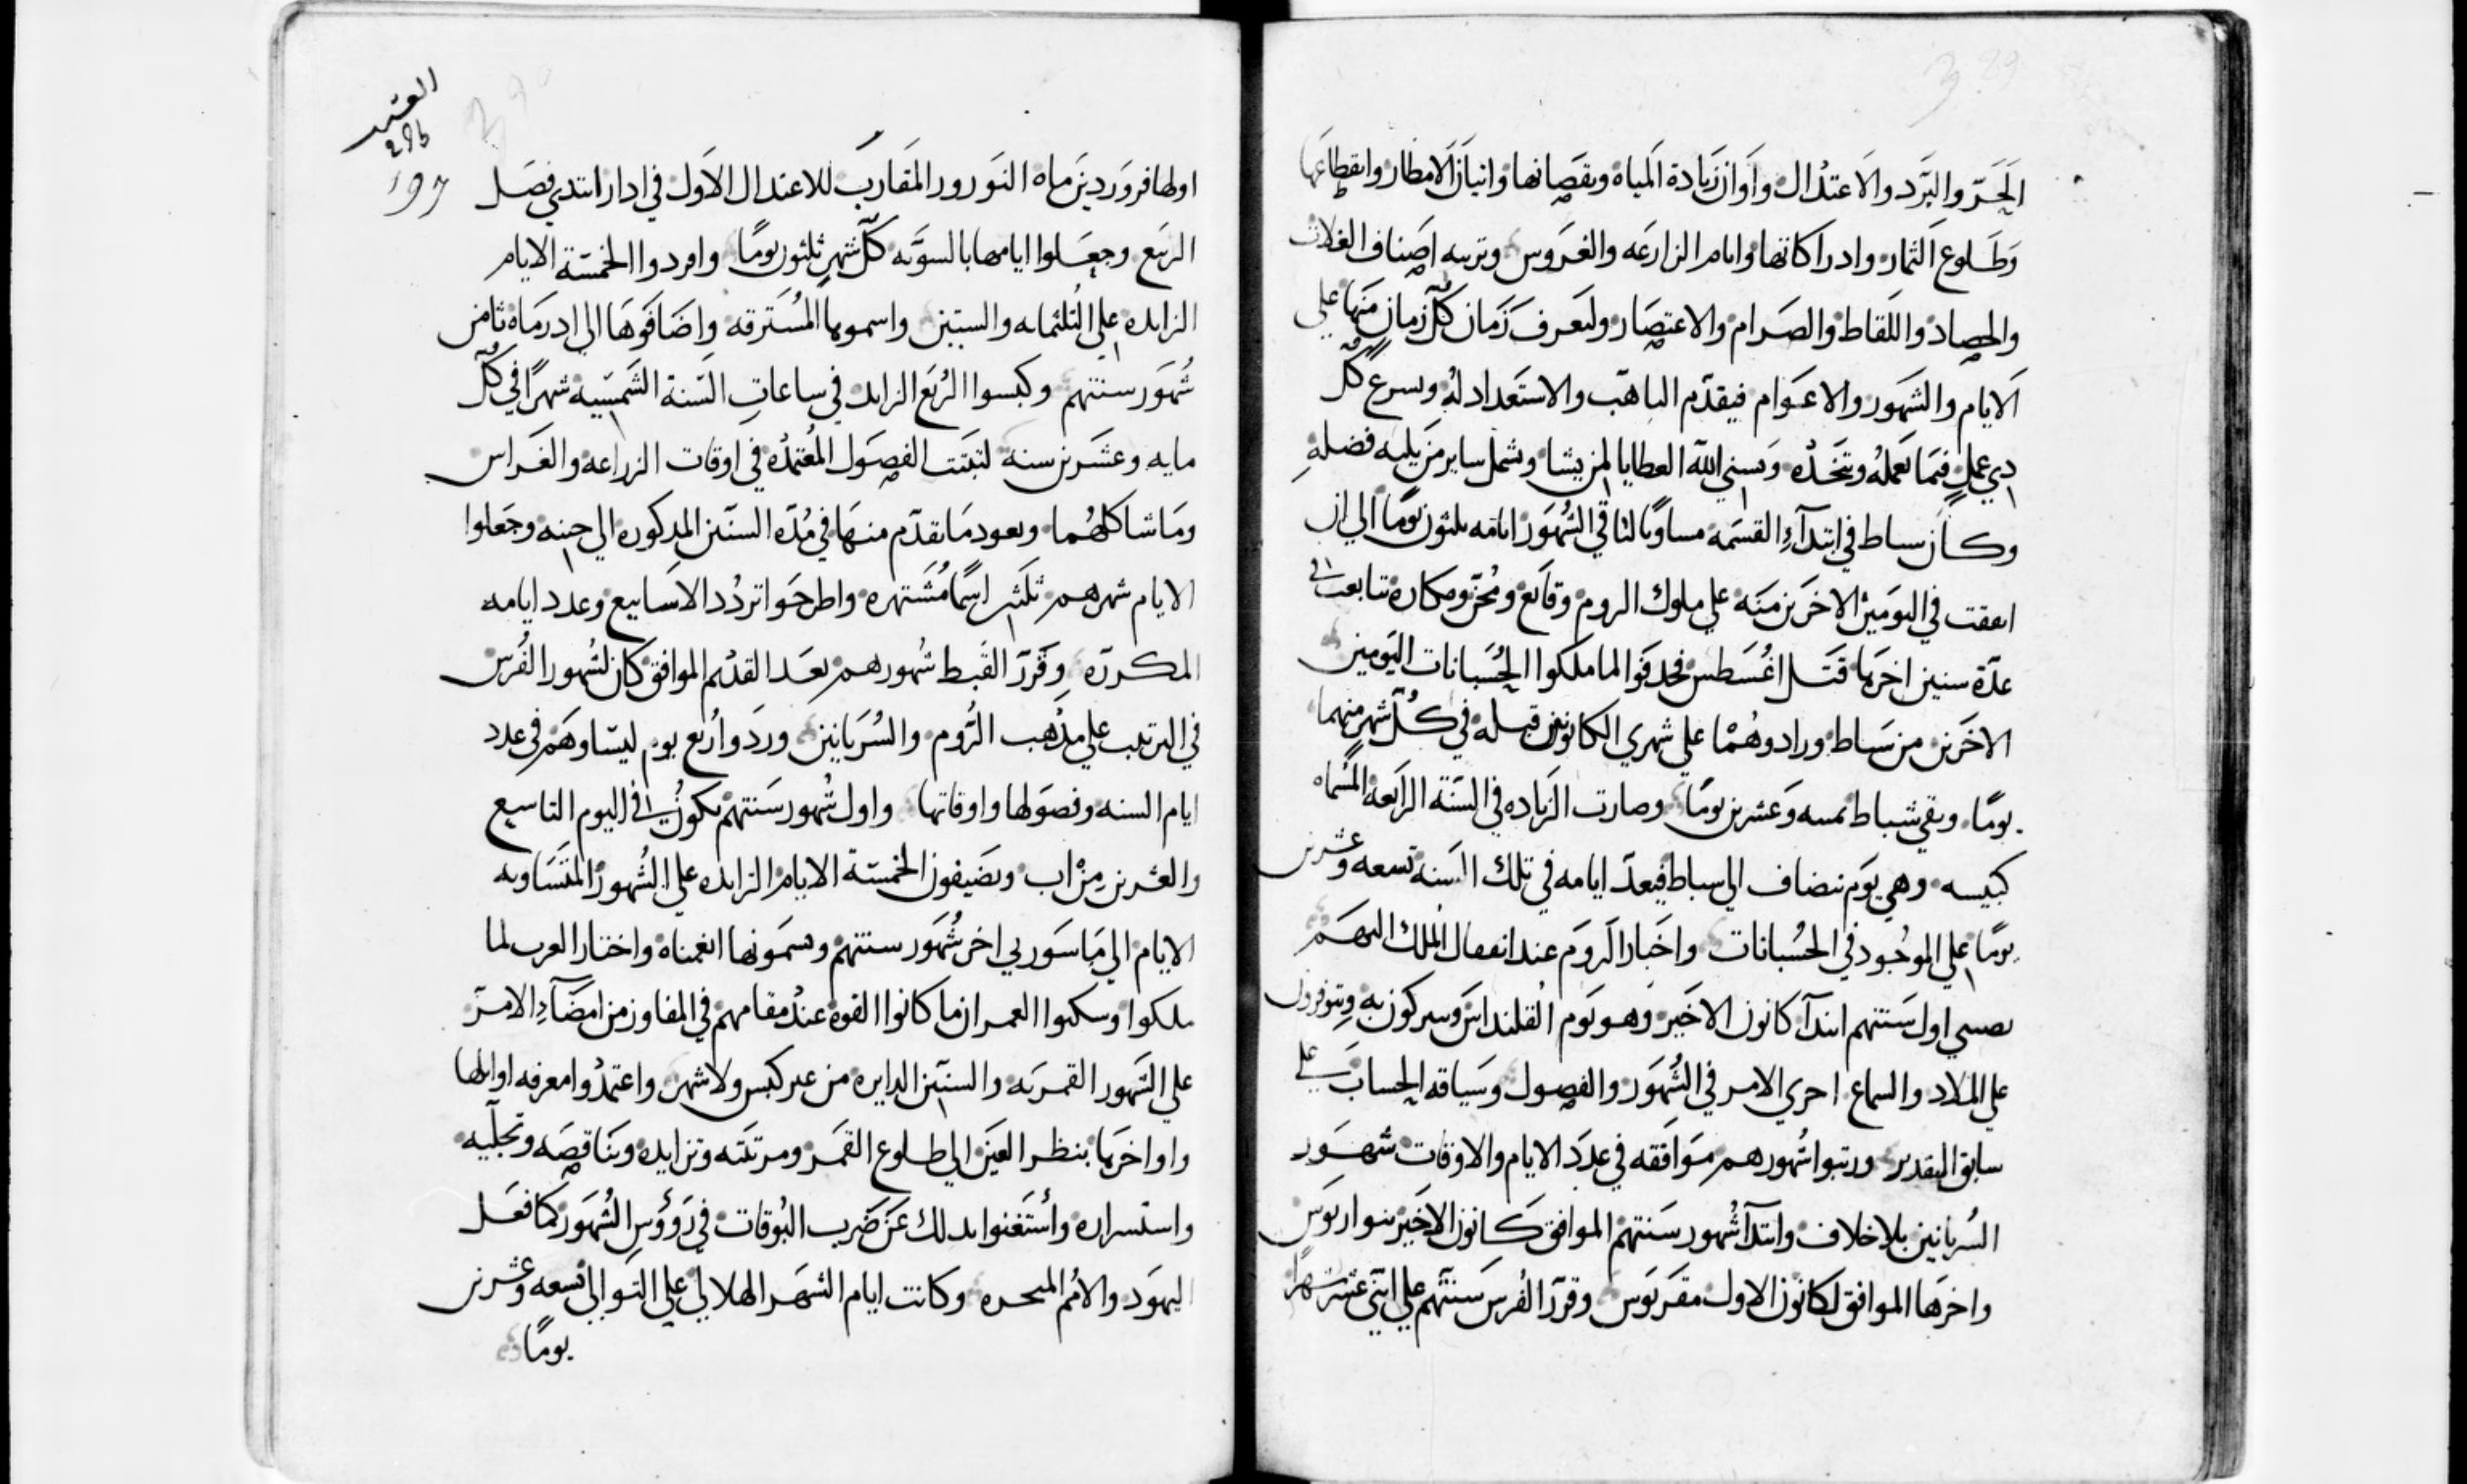 الحر والبرد والاعتدال واوان زيادة المياه ونقصانها واتيان الامطار وانقطاعها
وطلوع الثمار وادراكاتها وايام الزارعه والغروس وتربيه اصناف الغلات
والحصاد واللقاط والصرام والاعتصار وليعرف زمان كل زمان منها علي
الايام والشهور والاعوام فيقدم التاهب والاستعداد له ويسرع كل
دي عمل فيما يعمله ويتخده ويسني الله العطايا لمن يشا ويشمل ساير من يليه فضله
وكان سباط في ابتدآء القسمه مساويا لباقي الشهور ايامه ثلثون يوما الي ان
اتفقت في اليومين الاخرين منه علي ملوك الروم وقايع ومحن ومكاره تتابعت في
عدة سنين اخرها قتل اغسطس فحدفوا لما ملكوا الحسبانات اليومين
الاخرين من سباط وزادوهما علي شهري الكانونين قبله في كل شهر منهما
يوما وبقي شباط ثمنيه وعشرين يوما وصارت الزياده في السنة الرابعه المسماه
كبيسه وهي يوم ينضاف الي سباط فيعد ايامه في تلك السنه تسعه وعشرين
يوما علي الموجود في الحسبانات واختار الروم عند انتقال الملك اليهم
تصيير اول سنتهم ابتدآ كانون الاخير وهو يوم القلنداس ويتبركون به ويتوفرون
علي الملاد والسماع اجري الامر في الشهور والفصول وسياقه الحساب علي
سابق التقدير ورتبوا شهورهم موافقه في عدد الايام والاوقات شهور
السريانيين بلا خلاف وابتدآ شهور سنتهم الموافق كانون الاخير ينواريوس
واخرها الموافق لكانون الاول مقريوس وقرر الفرس سنتهم علي اثني عشر شهرا
العتر
296
197
اولها فروردين ماه النورور المقارب للاعتدال الاول في ادار ابتدي فصل
الربيع وجعلوا ايامها بالسويه كل شهر ثلثون يوما وافردوا الخمسة الايام
الزايده علي الثلثمايه والستين واسموها المسترقه واضافوها الي ادرماه ثامن
شهور سنتهم وكبسوا الربع الزايد في ساعات السنة الشمسيه شهرا في كل
مايه وعشرين سنة لتثبت الفصول المعتمده في اوقات الزراعه والغراس
وما شاكلهما ويعود ما تقدم منها في مدة السنين المدكوره الي حينه وجعلوا
الايام شهرهم ثلثين اسما مشتهره واطرحوا تردد الاسابيع وعدد ايامه
المكررة وقرر القبط شهورهم بعد القديم الموافق كان لشهور الفرس
في الترتيب علي مذهب الروم والسريانيين وردوا ربع يوم ليتساوهم في عدد
ايام السنه وفصولها واوقاتها واول شهور سنتهم يكون في اليوم التاسع
والعشرين من اب ويضيفون الخمسة الايام الزايده علي الشهور المتساويه
الايام الي ماسوري اخر شهور سنتهم ويسمونها ابغمناه واختار العرب لما
ملكوا وسكنوا العمران ما كانوا الفوه عند مقامهم في المفاوز من امضآء الامر
علي الشهور القمريه والسنين الدايره من غير كبس ولا شهر واعتمدوا معرفه اوايلها
واواخرها بنظر العين الي طلوع القمر ومرتبته وتزايده وتناقصه وتجليه
واستسراره واستغنوا بدلك عن ضرب البوقات في رووس الشهور كما فعل
اليهود والامم المتحيره وكانت ايام الشهر الهلالي علي التوالي تسعه وعشرين
يوما